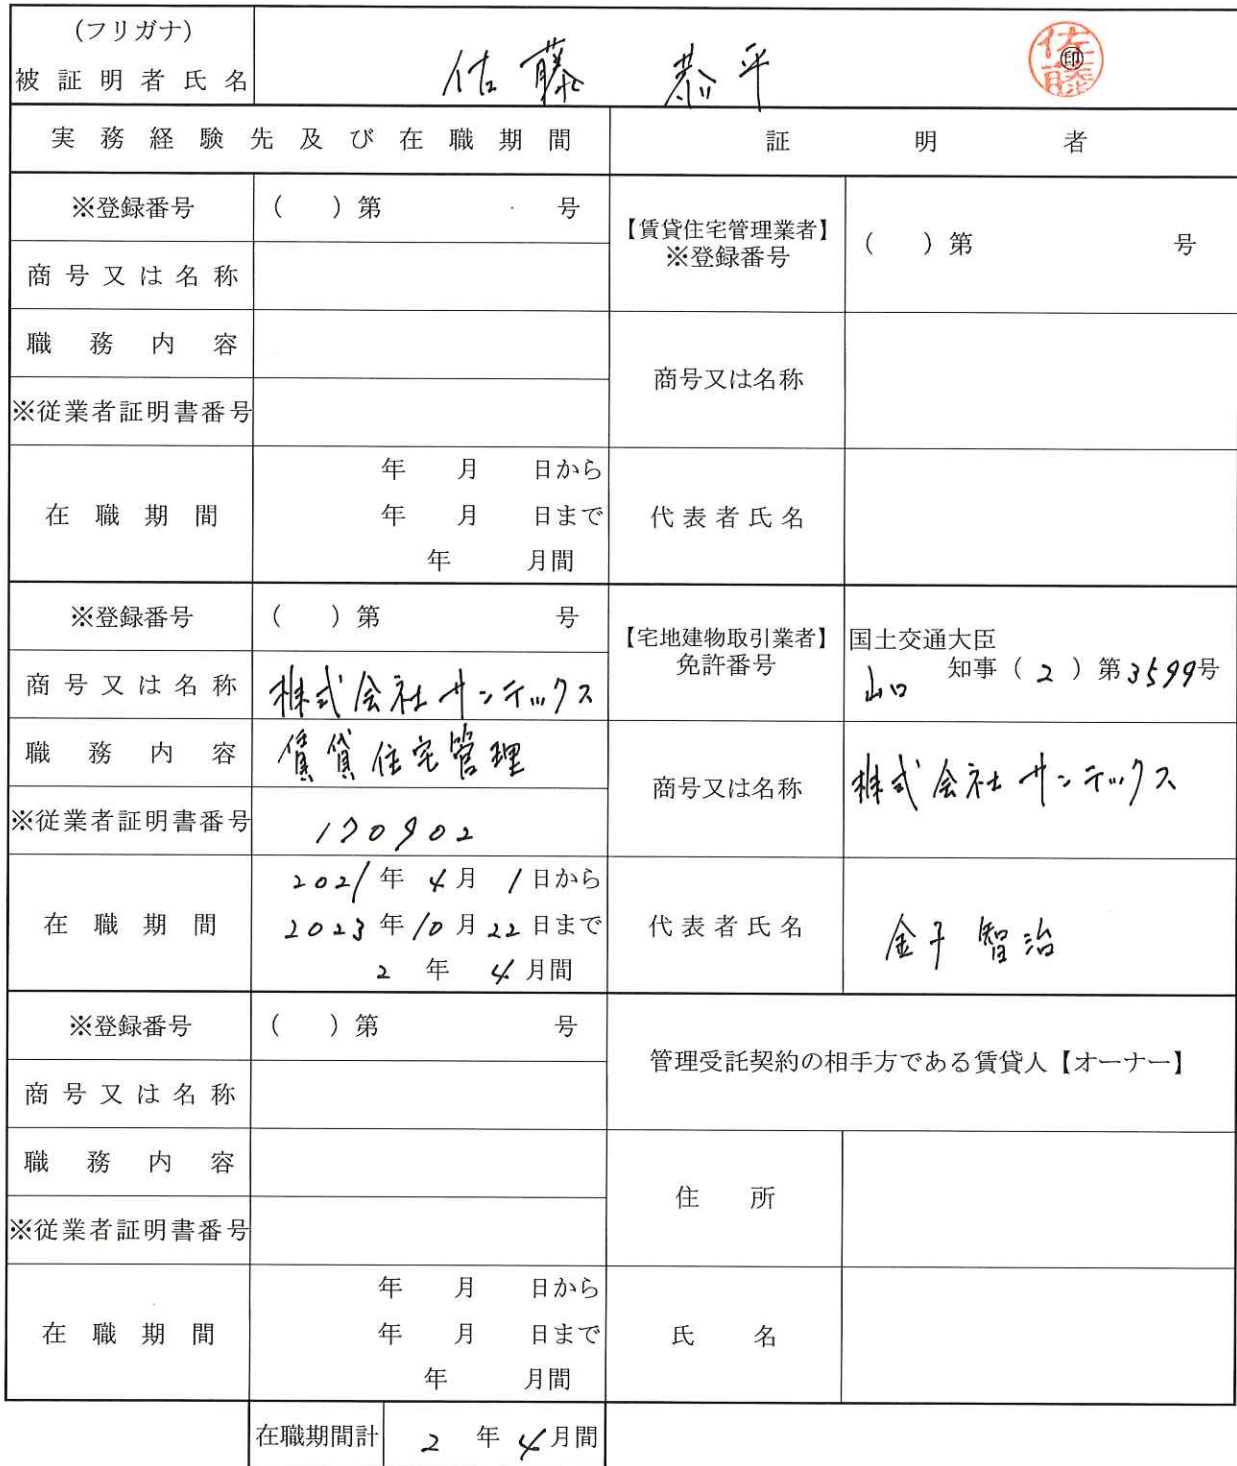 (フリガナ)
被証明者氏名
佐藤 恭平
佐藤
㊞
実務経験先及び在職期間
証明者
※登録番号
( )第 号
【賃貸住宅管理業者】
※登録番号
( )第 号
商号又は名称
職務内容
商号又は名称
※従業者証明書番号
在職期間
年 月 日から
年 月 日まで
年 月間
代表者氏名
※登録番号
( )第 号
【宅地建物取引業者】
免許番号
国土交通大臣
山口 知事(2)第3599号
商号又は名称
株式会社サンテックス
職務内容
賃貸住宅管理
商号又は名称
株式会社サンテックス
※従業者証明書番号
170902
在職期間
2021年4月1日から
2023年10月22日まで
2年4月間
代表者氏名
金子 智治
※登録番号
( )第 号
管理受託契約の相手方である賃貸人【オーナー】
商号又は名称
職務内容
住所
※従業者証明書番号
在職期間
年 月 日から
年 月 日まで
年 月間
氏名
在職期間計
2年4月間